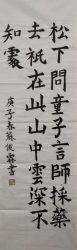 松下問童子言師採藥
去祇在此山中雲深不
知處
庚子春蘇俊霖書